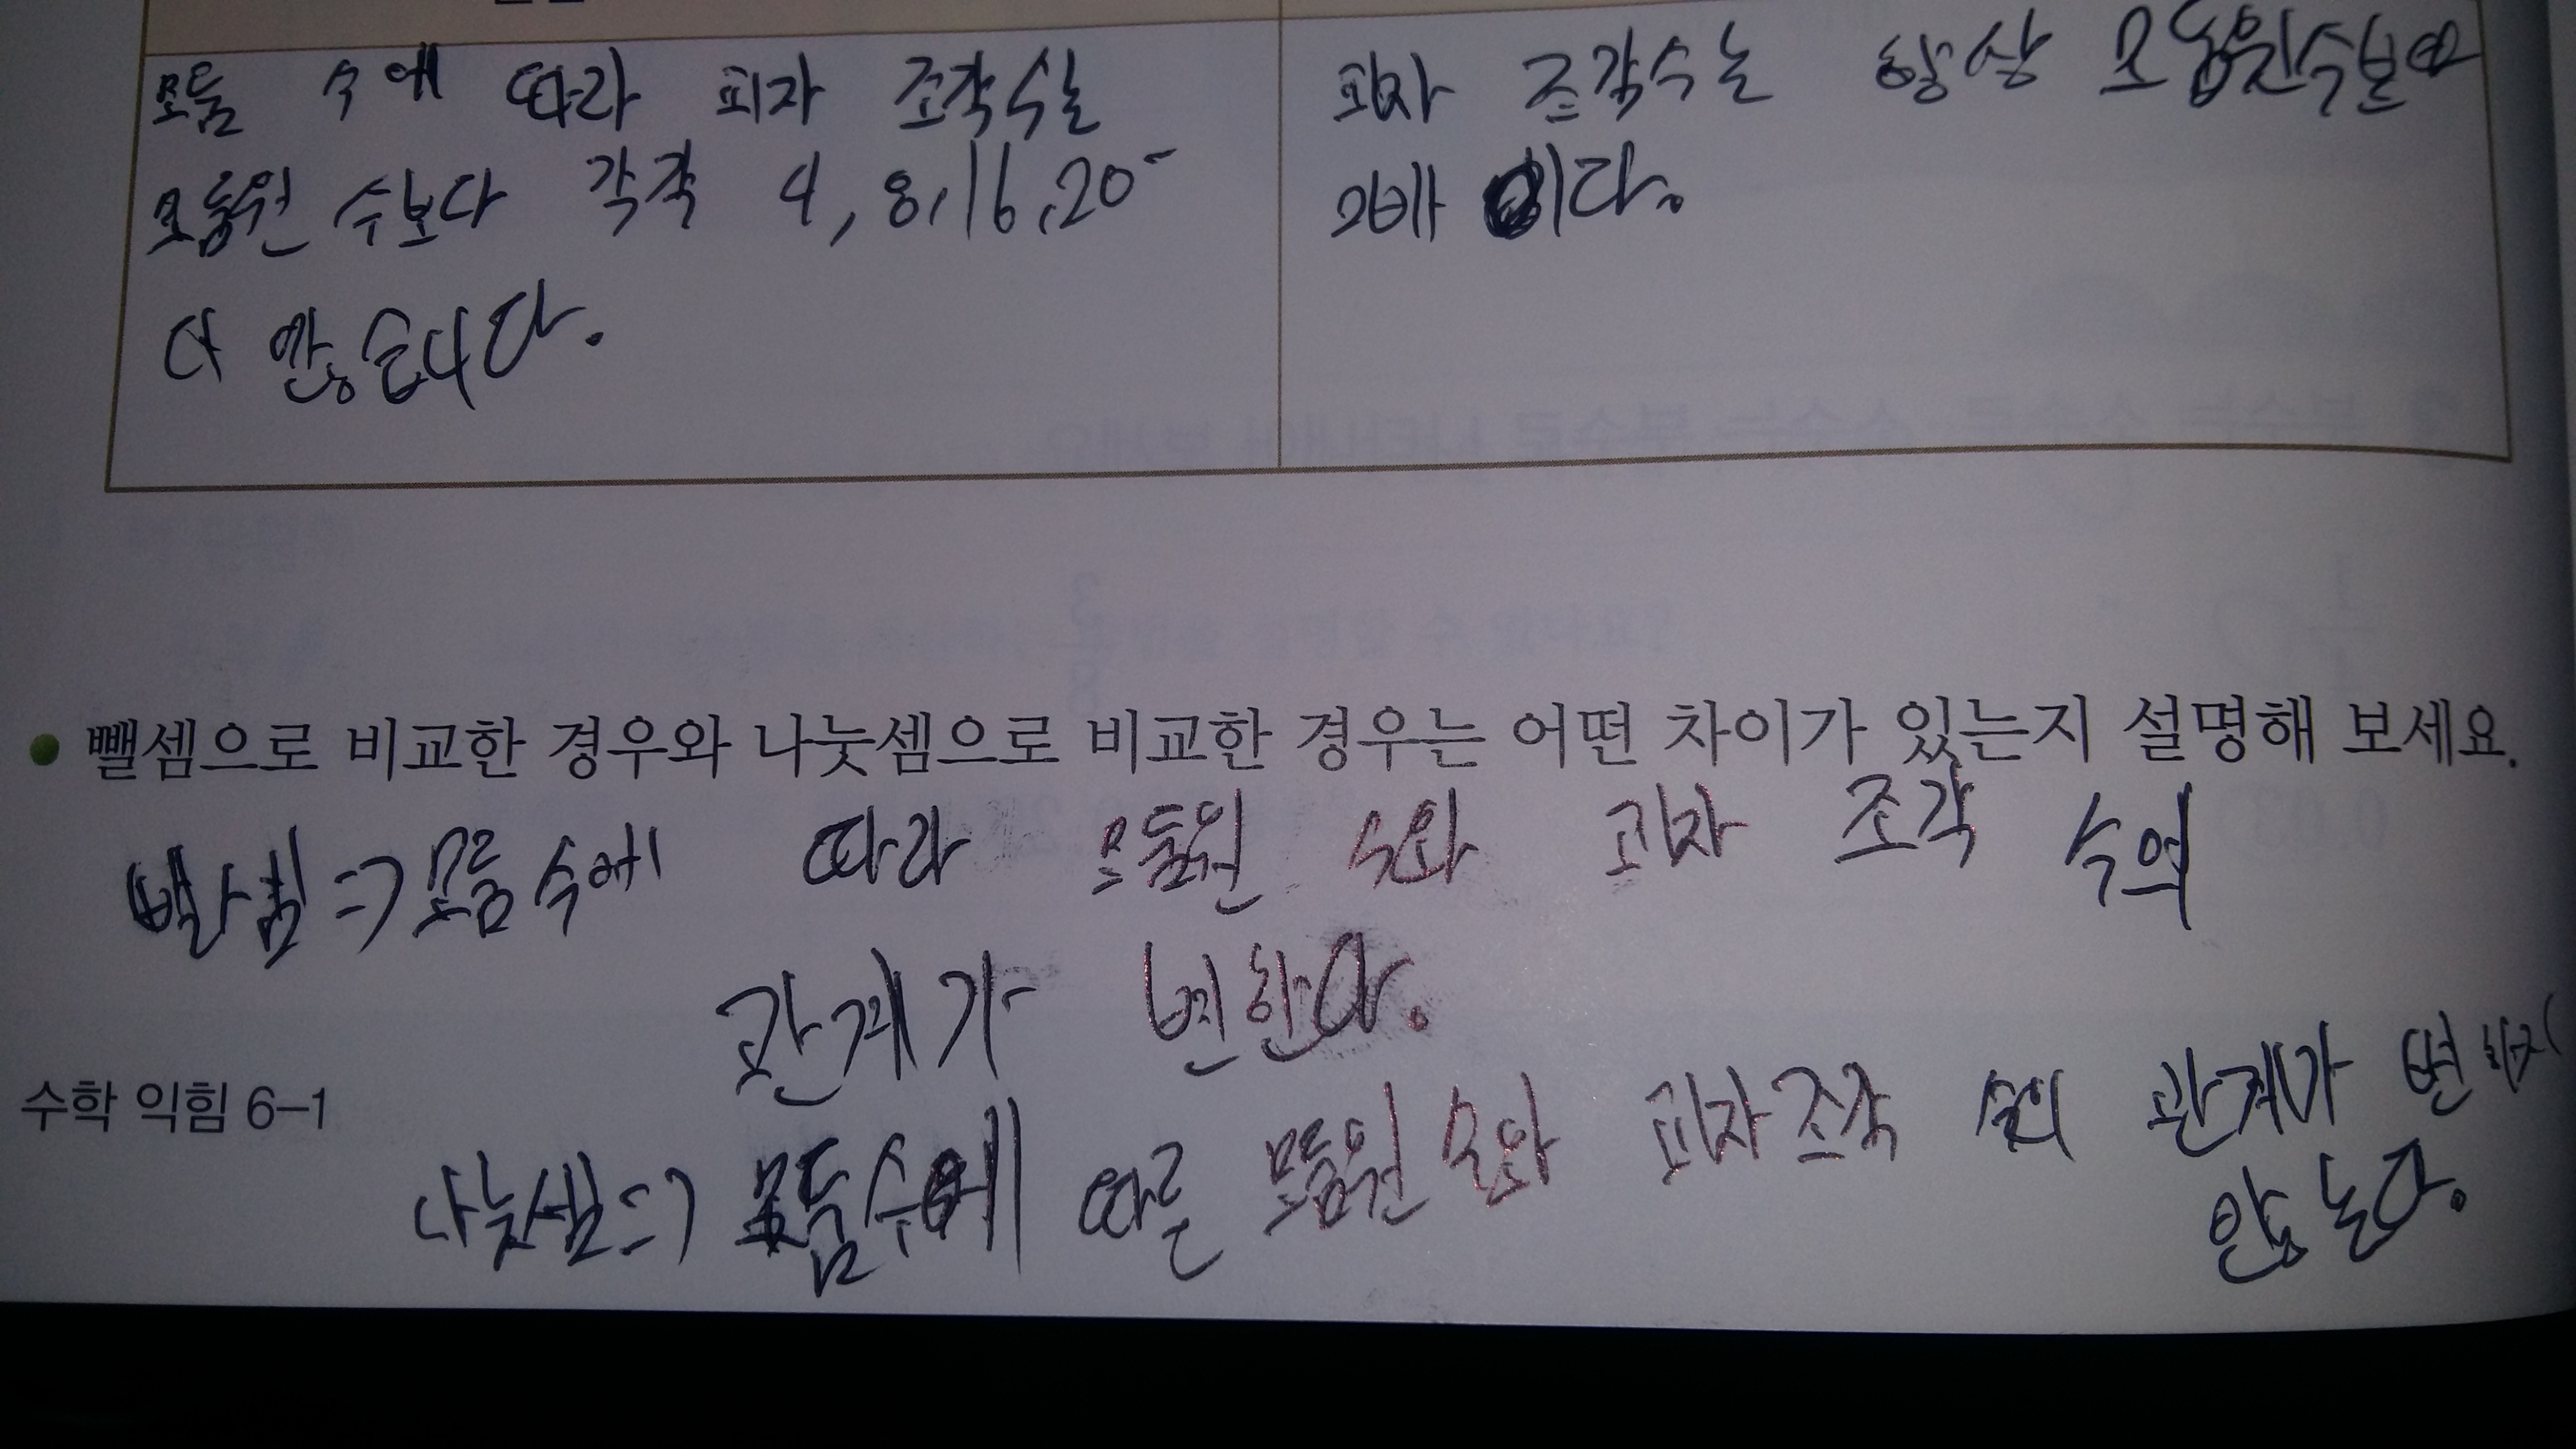 모둠 수에 따라 피자 조각 수는
모둠원 수보다 각각 4, 8, 16, 20
더 많습니다.
피자 조각 수는 항상 모둠원 수보다
2배 이다.
뺄셈으로 비교한 경우와 나눗셈으로 비교한 경우는 어떤 차이가 있는지 설명해 보세요.
뺄셈 => 모둠 수에 따라 모둠원 수와 피자 조각 수의
관계가 변한다.
나눗셈 => 모둠 수에 따른 모둠원 수와 피자 조각 수의 관계가 변하지
않는다.
수학 익힘 6-1